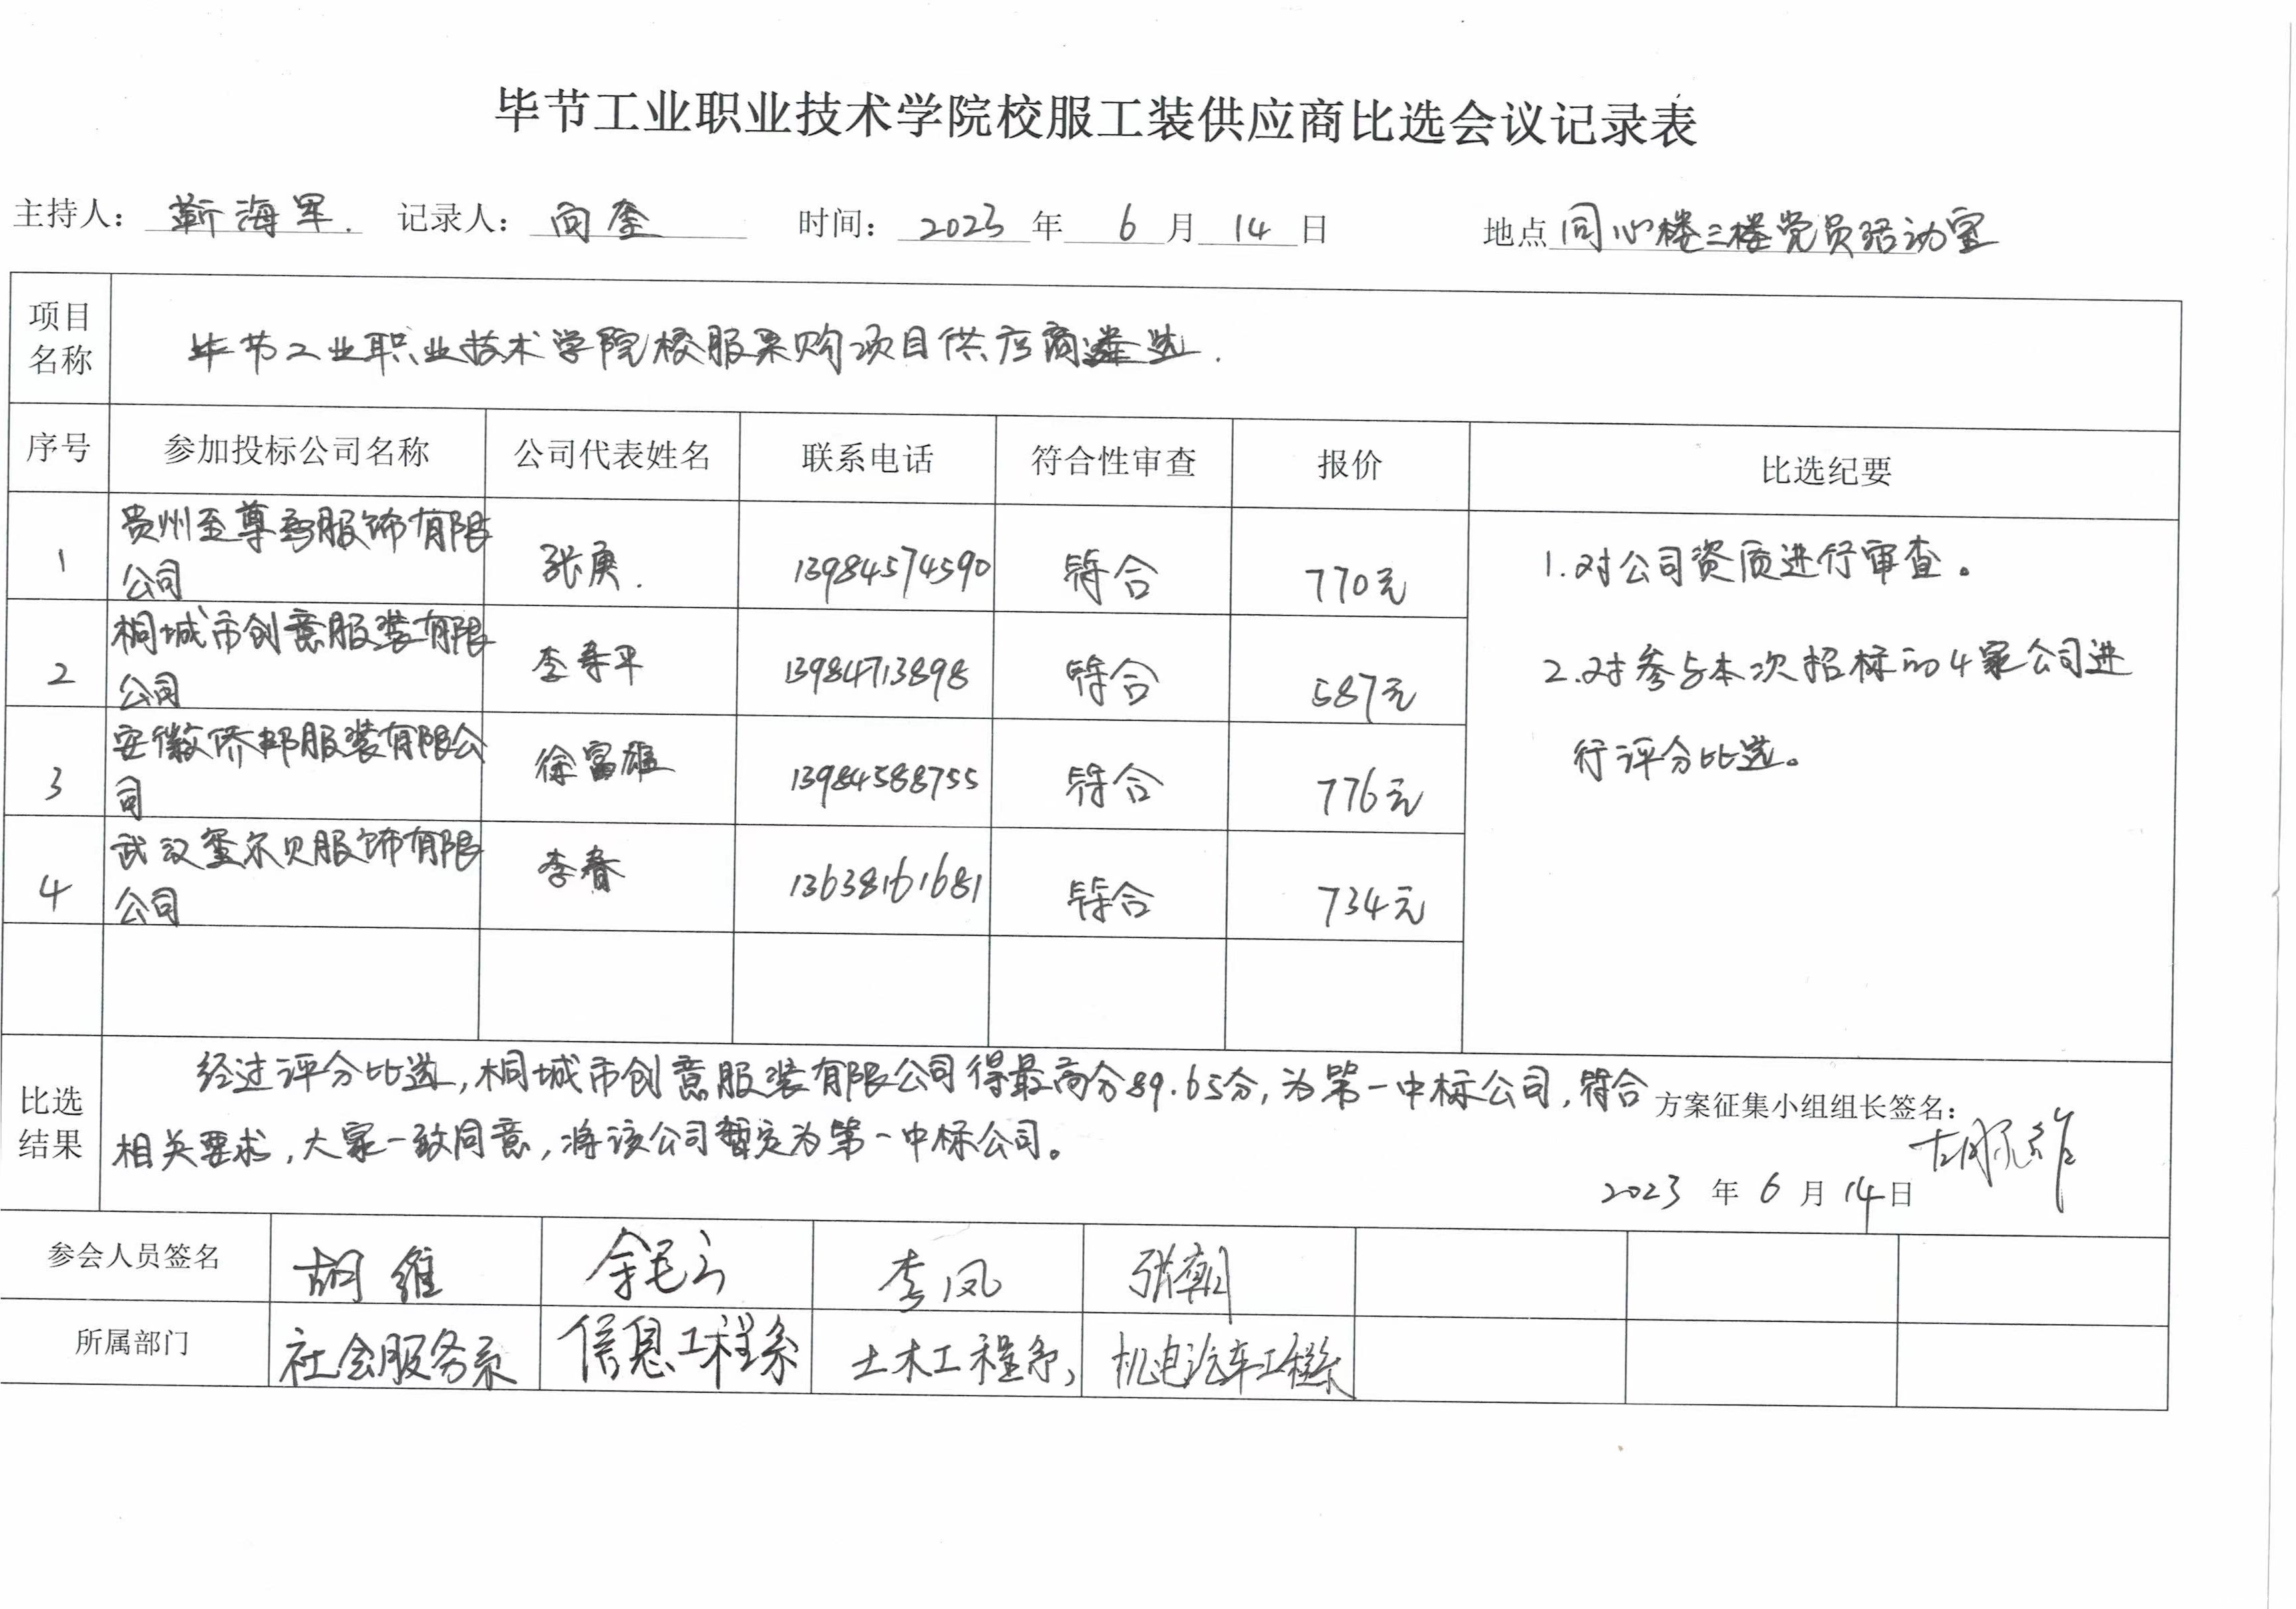 毕节工业职业技术学院校服工装供应商比选会议记录表
主持人： 靳海军. 记录人： 向奎 时间： 2023 年 6 月 14 日 地点 同心楼三楼党员活动室
项目
名称
毕节工业职业技术学院校服采购项目供应商遴选.
序号 参加投标公司名称 公司代表姓名 联系电话 符合性审查 报价 比选纪要
1 贵州至尊秀服饰有限
公司
张庚. 13984574590 符合 770元
2 桐城市创意服装有限
公司
李寿平 13984713898 符合 587元
3 安徽侨邦服装有限公
司
徐富雄 13984588755 符合 776元
4 武汉玺尔贝服饰有限
公司
李春 13638161681 符合 734元
1.对公司资质进行审查。
2.对参与本次招标的4家公司进
行评分比选。
比选
结果
经过评分比选,桐城市创意服装有限公司得最高分89.65分,为第一中标公司,符合
相关要求,大家一致同意,将该公司暂定为第一中标公司。
方案征集小组组长签名：
2023 年 6 月 14 日
参会人员签名 胡维 李凤 张朝
所属部门 社会服务系 信息工程系 土木工程系 机电汽车工程系